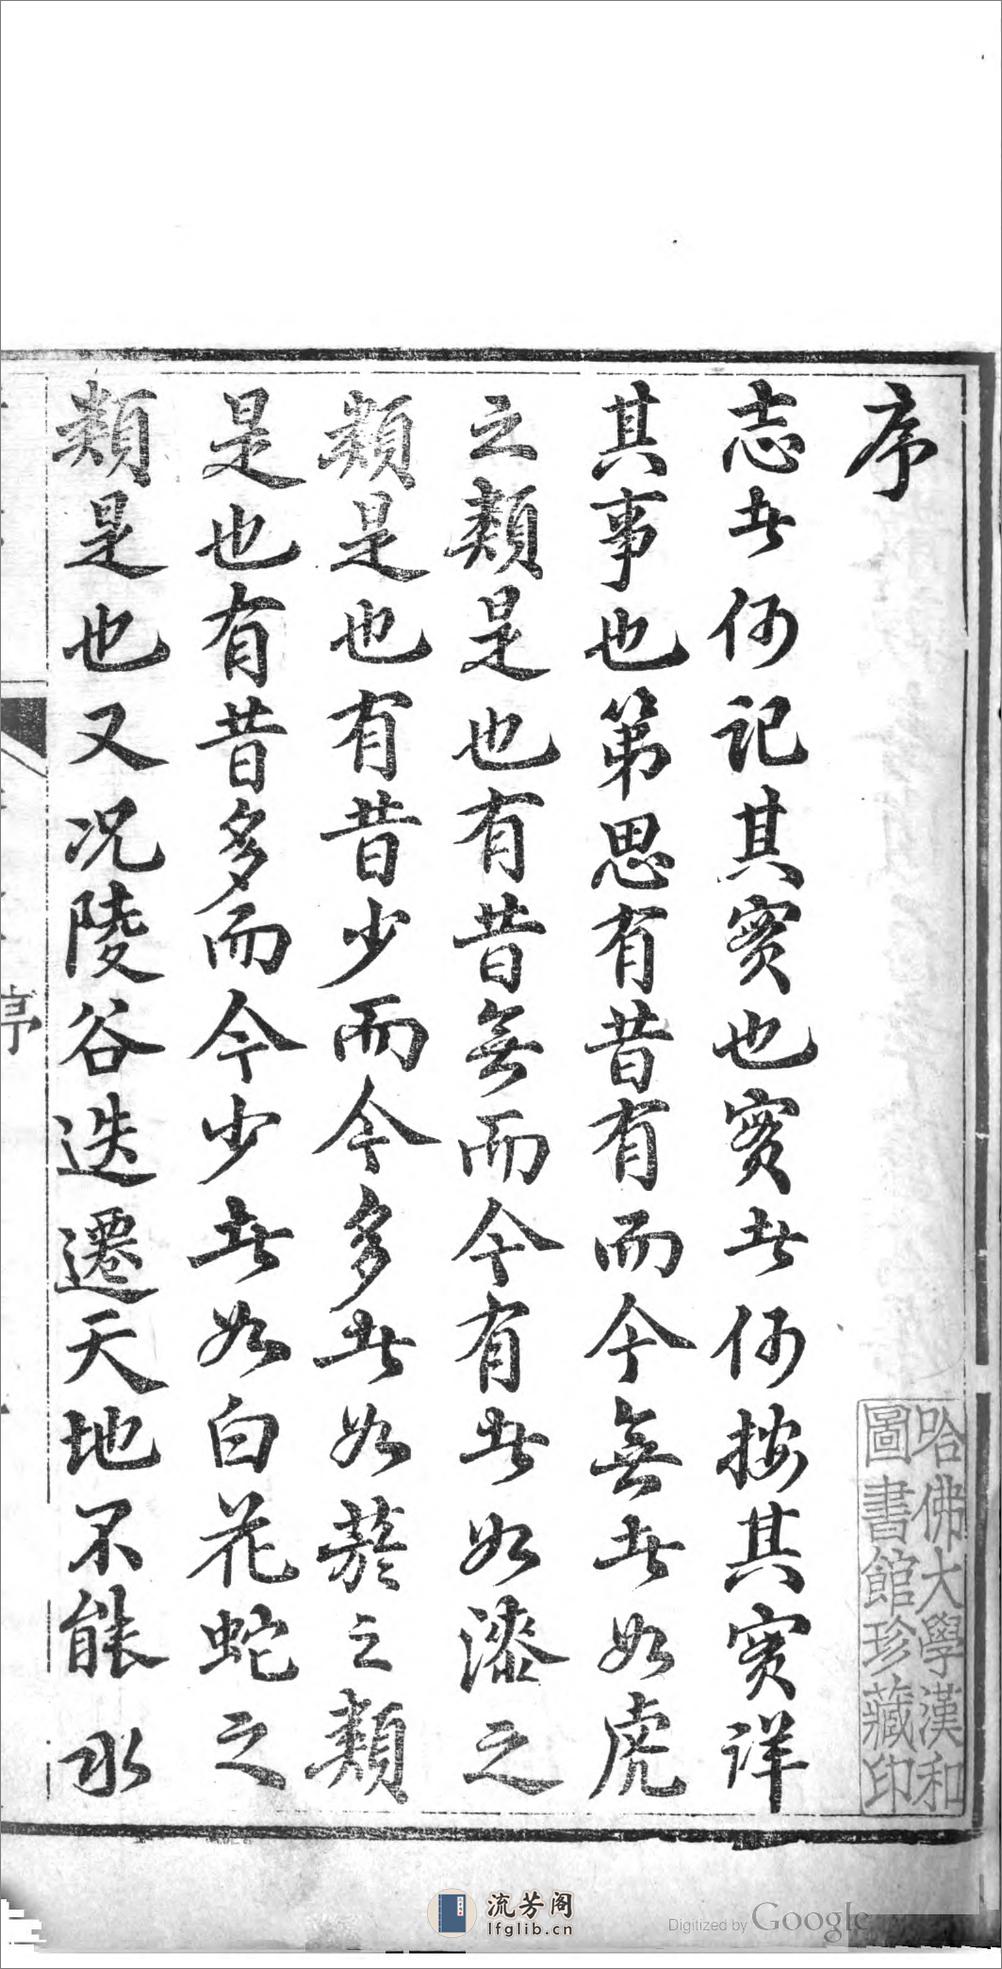 序
志者何記其實也實者何按其實詳
其事也第思有昔有而今無者如虎
之類是也有昔無而今有者如漆之
類是也有昔少而今多者如蒤之類
是也有昔多而今少者如白花蛇之
類是也又况陵谷迭遷天地不能永
序
哈佛大學漢和
圖書館珍藏印
流芳阁
lfglib.cn
Digitized by Google